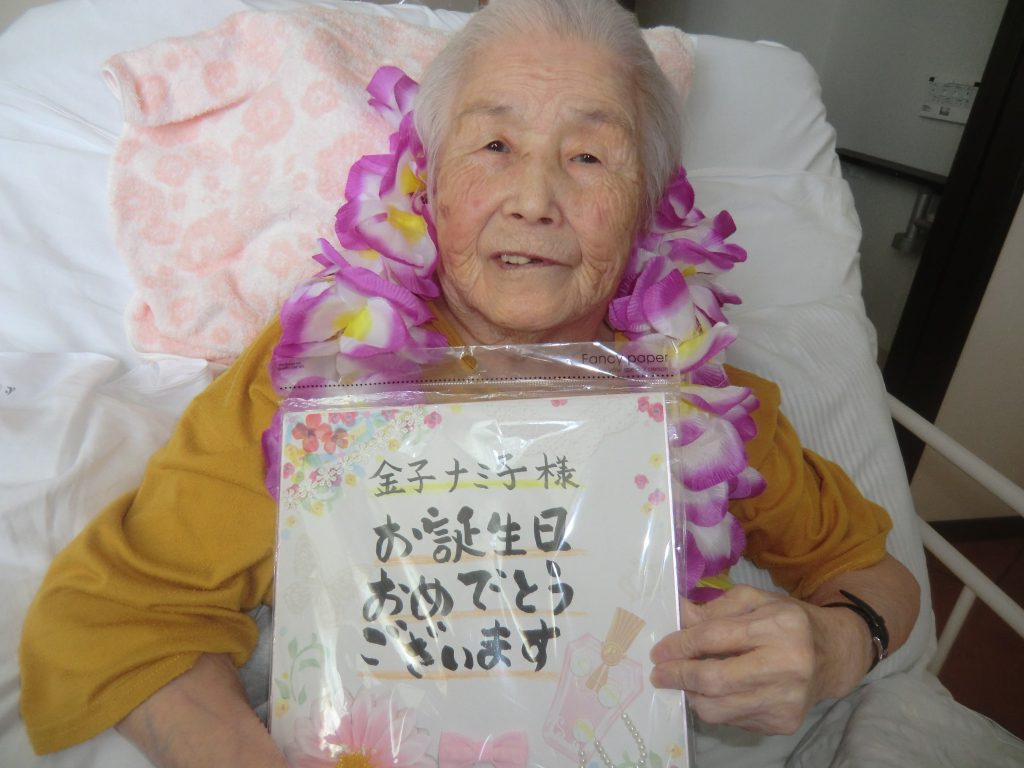 Fancy paper
金子ナミ子様
お誕生日
おめでとう
ございます